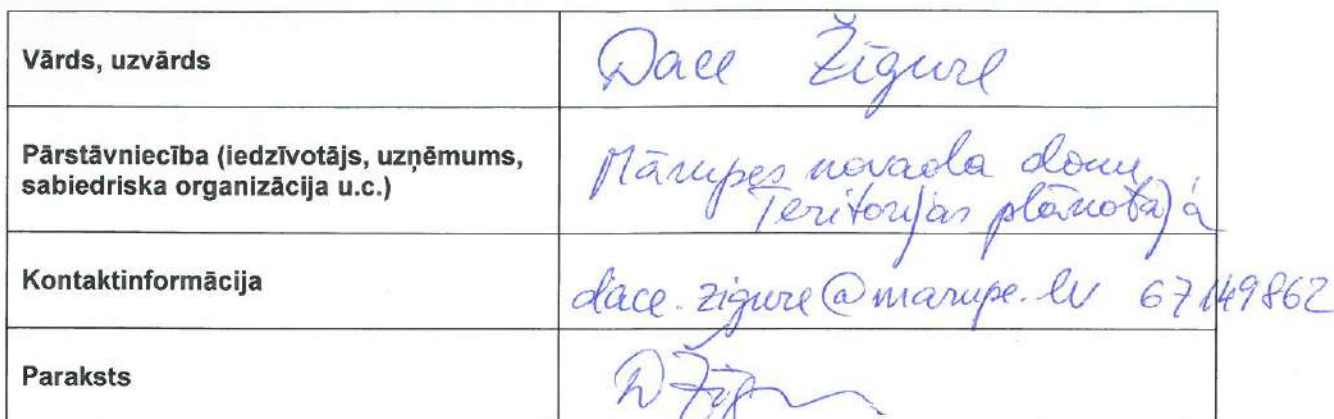 Vārds, uzvārds
Dace Žīgure
Pārstāvniecība (iedzīvotājs, uzņēmums,
sabiedriska organizācija u.c.)
Mārupes novada dome,
Teritorijas plānotāja
Kontaktinformācija
dace.zigure@marupe.lv 67149862
Paraksts
DŽīg